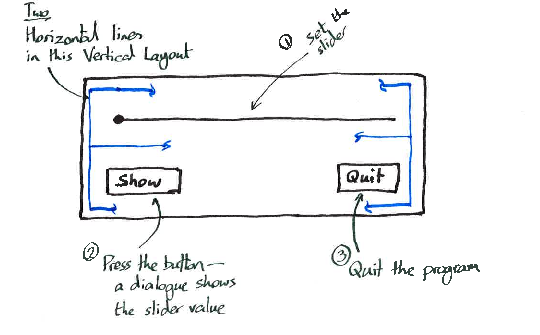 Two
Horizontal lines
in this Vertical Layout
① Set the
slider
Show
Quit
② Press the button —
a dialogue shows
the slider value
③ Quit the program